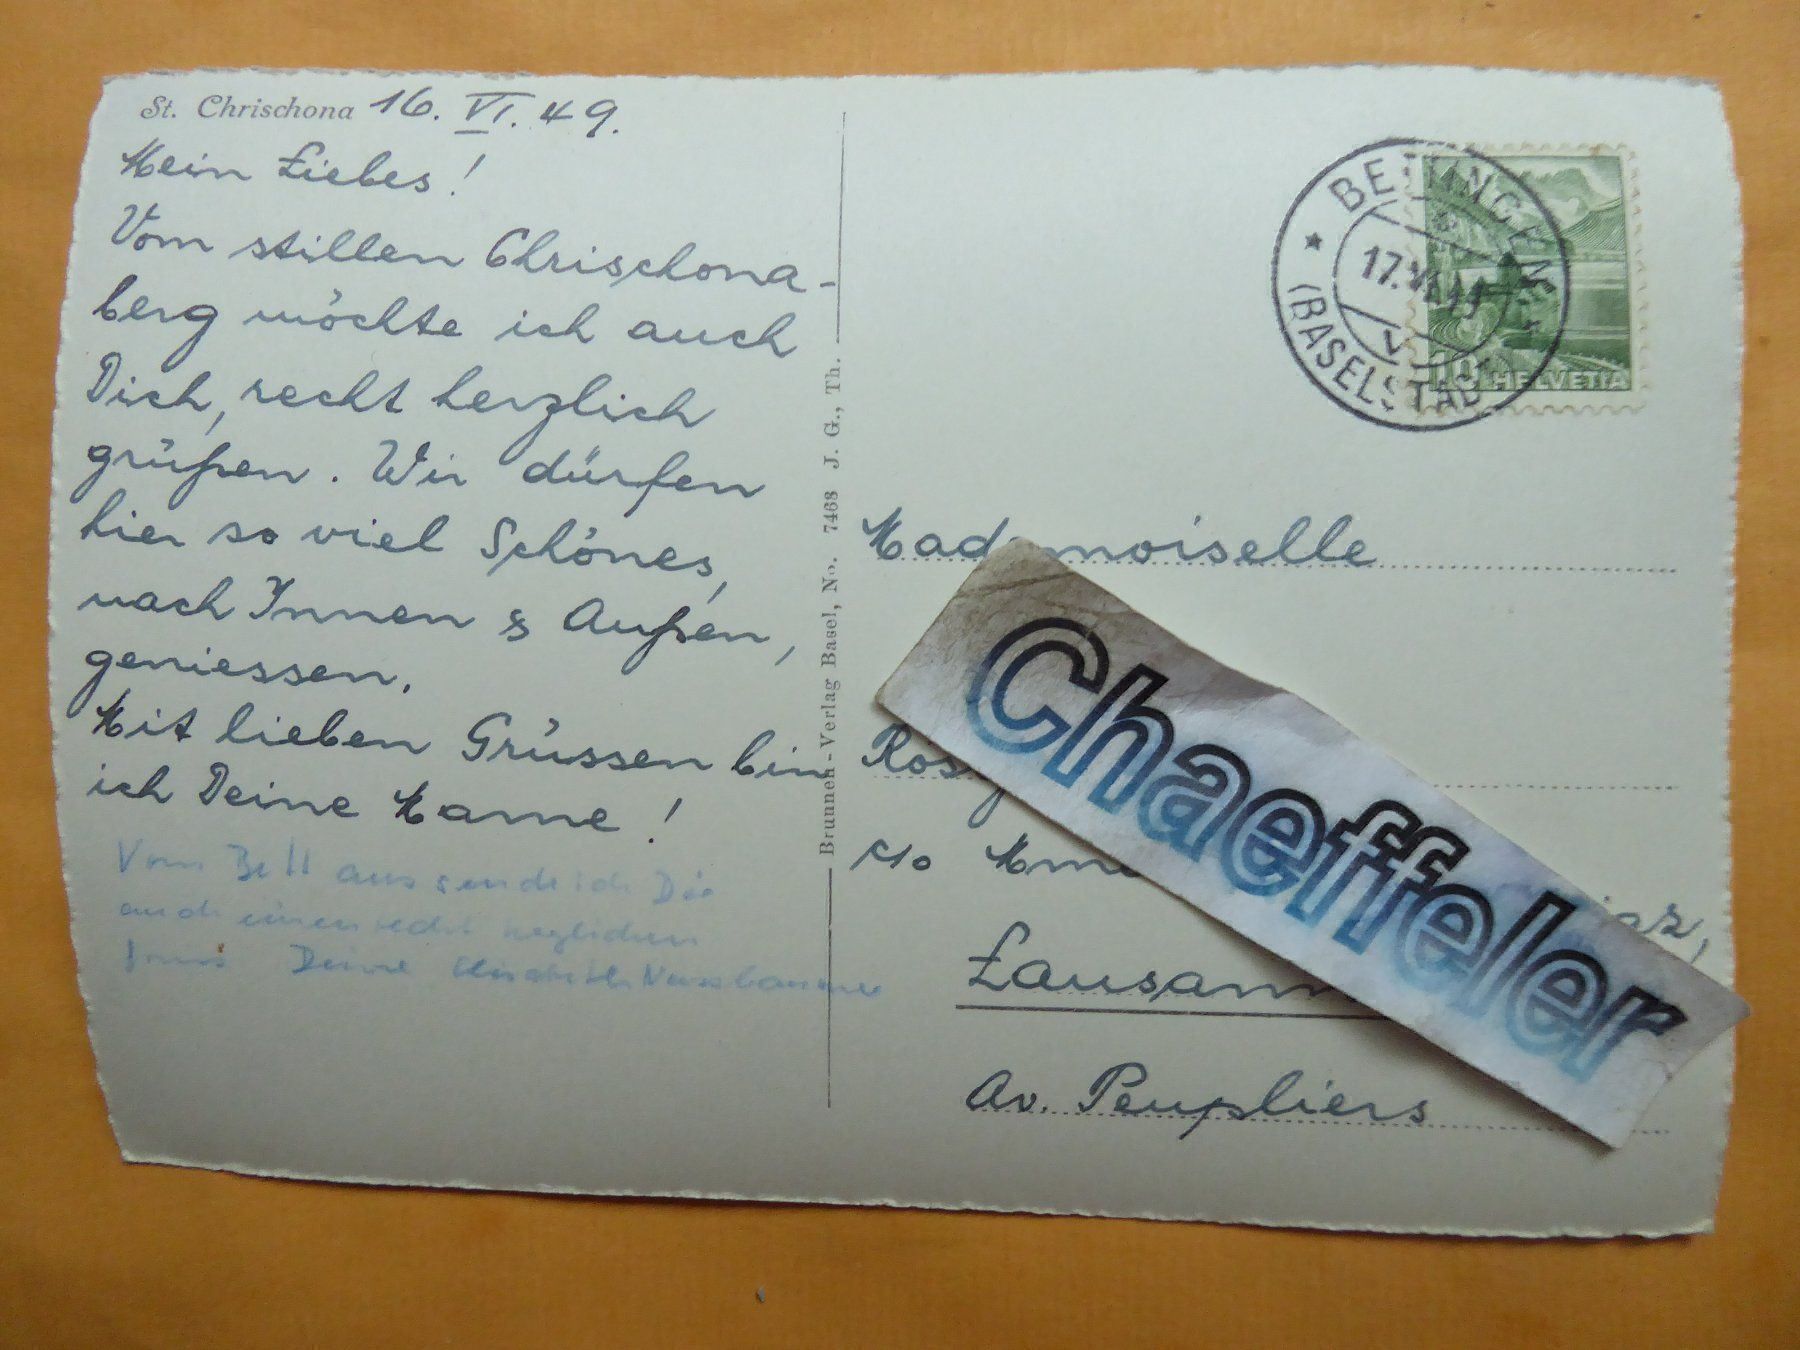 St. Chrischona 16. VI. 49.
Mein Liebes!
Vom stillen Chrischona-
berg möchte ich auch
Dich, recht herzlich
grüßen. Wir dürfen
hier so viel Schönes,
nach Innen & Außen,
geniessen.
Mit lieben Grüssen bin
ich Deine Hanne!
Vom Bett aus sende ich Dir
auch einen recht herzlichen
Gruss Deine Elisabeth Nussbaumer
Brunnen-Verlag Basel, No. 7468 J. G., Th.
BETTINGEN
17. VI. 49
(BASELSTADT)
10 HELVETIA
Mademoiselle
c/o Mme
Lausanne
Av. Peupliers
Chaeffeler